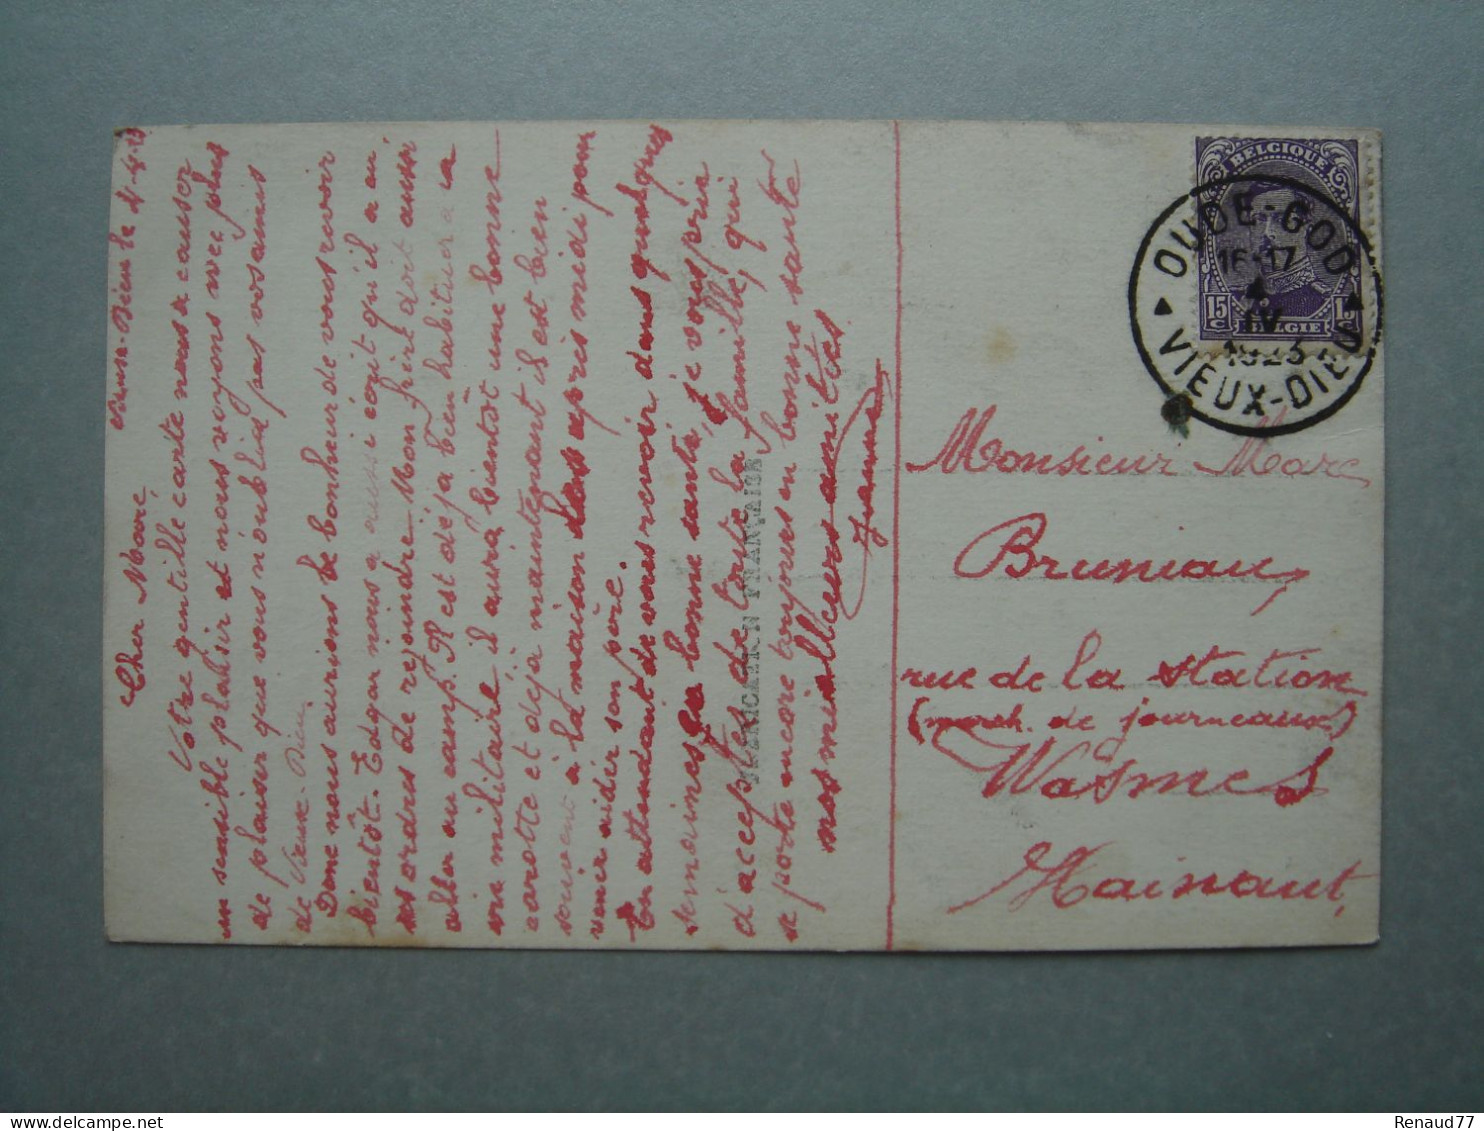 Vieux-Dieu le 4-4-23
Cher Marc
Votre gentille carte nous a causer
un sensible plaisir et nous voyons avec plus
de plaisir que vous n'oubliez pas vos amis
de Vieux-Dieu.
Dame nous aurions le bonheur de vous revoir
bientôt. Edgar nous a aussi écrit qu'il a eu
ses ordres de rejoindre. Mon frère doit aussi
aller au camp. Il est déjà bien habituer a la
vie militaire il aura bientôt une bonne
carotte et dejà maintenant il est bien
souvent a la maison dans après midi pour
venir aider son père.
En attendant de vous revoir dans quelques
semaines en bonne santé, je vous prie
d'accepter de toute la famille, qui
se porte encore toujours en bonne santé
nos meilleurs amitiés
Jeanne
FABRICATION FRANÇAISE
BELGIQUE
15 c
15
BELGIE
OUDE-GOD
16-17
4
IV
1923
VIEUX-DIEU
Monsieur Marc
Bruniau
rue de la station
(march. de journeaux)
Wasmes
Hainaut
Renaud77